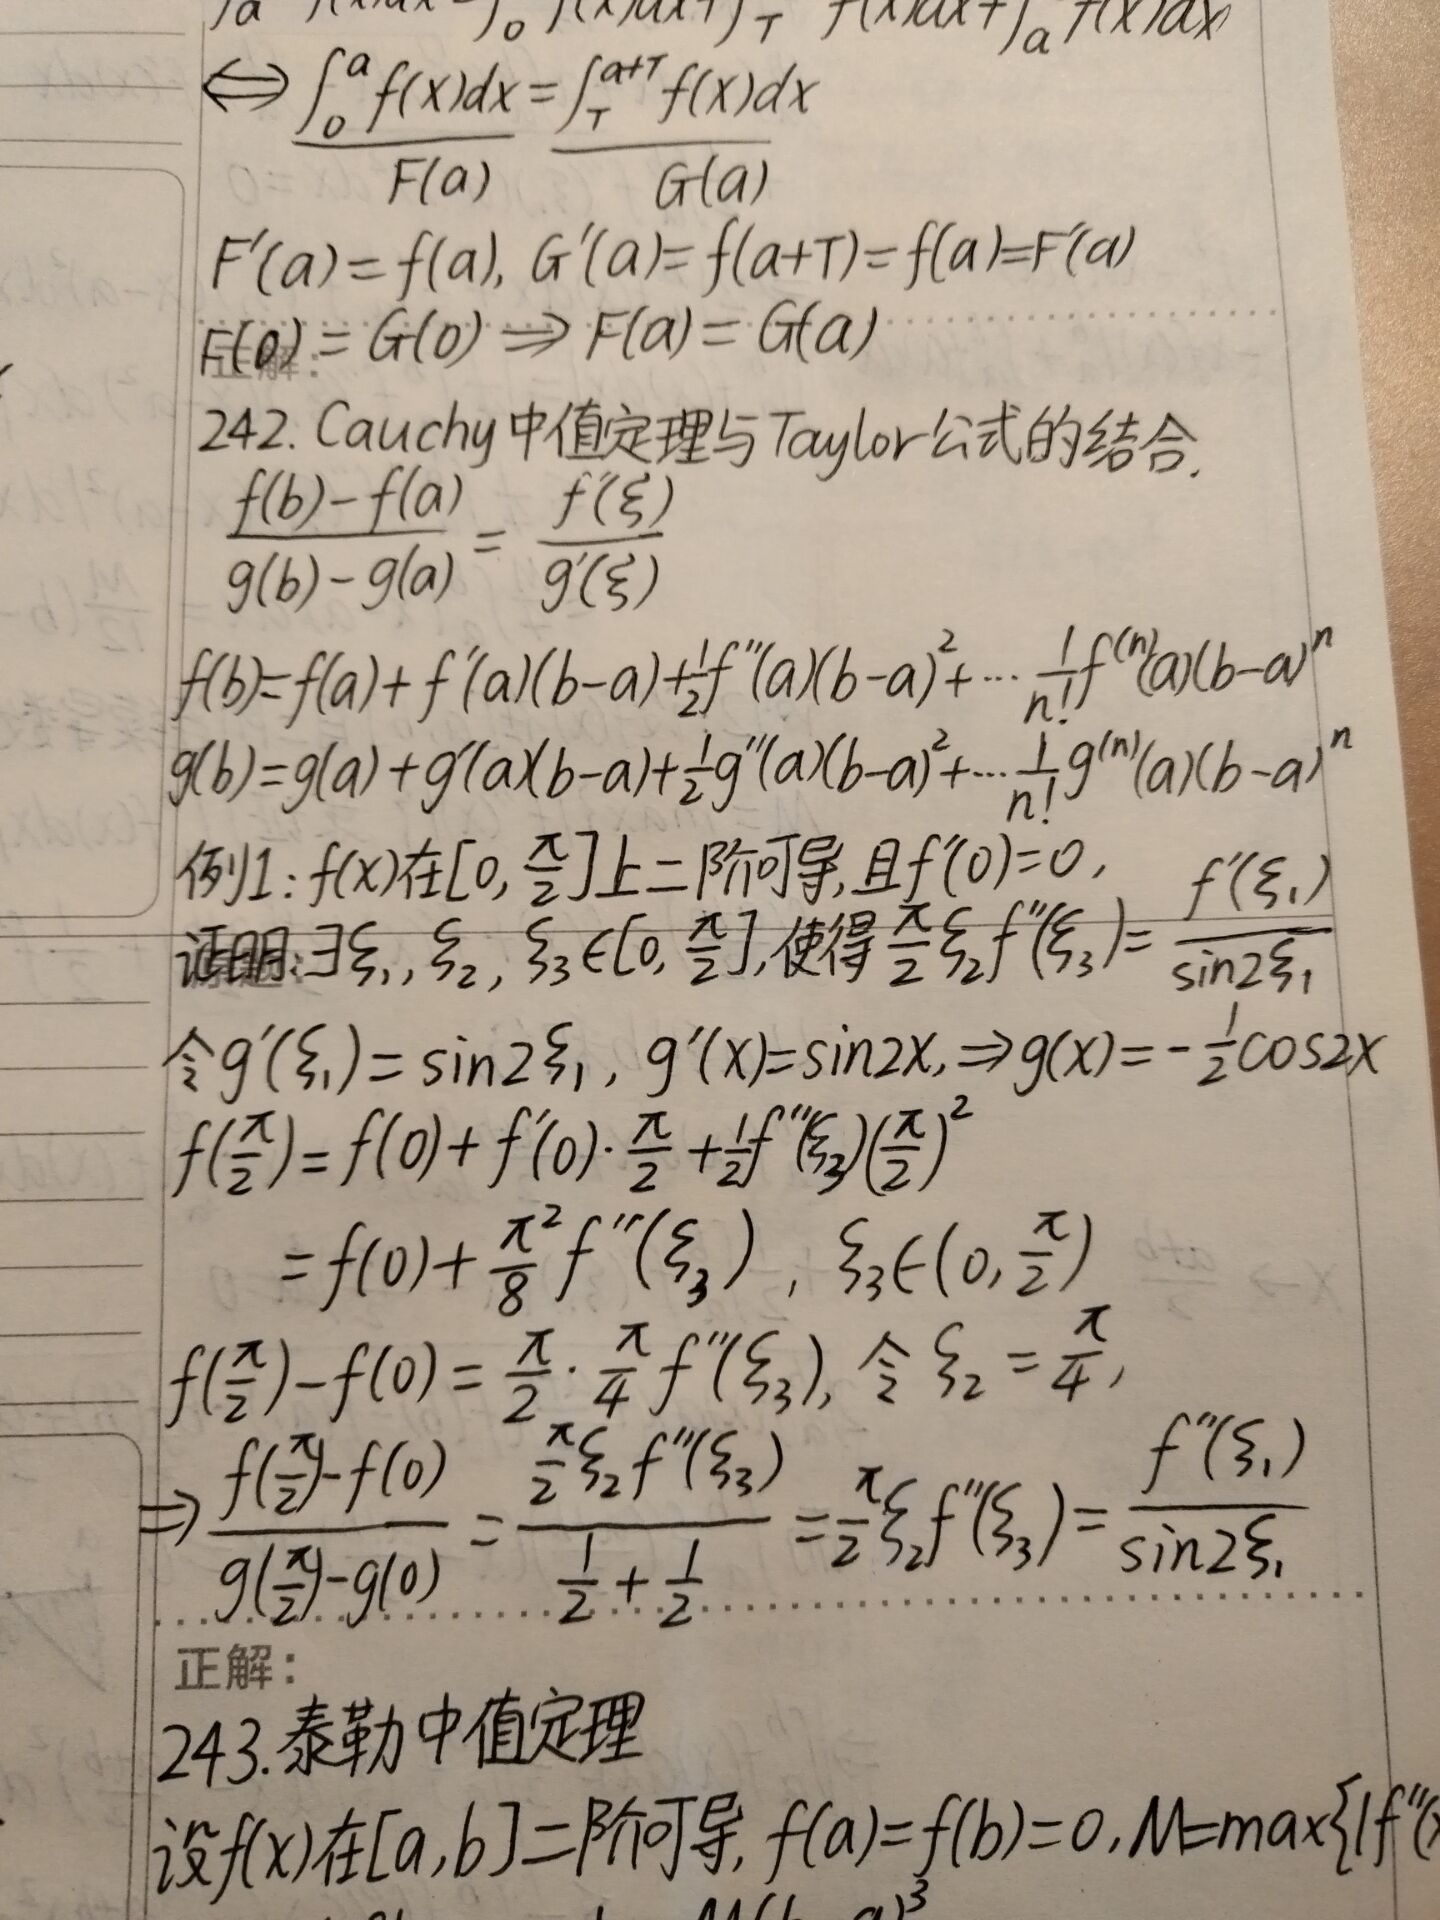 ∫ₐ f(x)dx = ∫₀ f(x)dx + ∫_T f(x)dx + ∫ₐ f(x)dx
⟺ ∫₀^a f(x)dx = ∫_T^{a+T} f(x)dx
F(a) G(a)
F'(a) = f(a), G'(a) = f(a+T) = f(a) = F'(a)
F(0) = G(0) ⇒ F(a) = G(a)
正解:
242. Cauchy中值定理与Taylor公式的结合.
\frac{f(b)-f(a)}{g(b)-g(a)} = \frac{f'(ξ)}{g'(ξ)}
f(b)=f(a)+f'(a)(b-a)+\frac{1}{2}f''(a)(b-a)^2+…\frac{1}{n!}f^{(n)}(a)(b-a)^n
g(b)=g(a)+g'(a)(b-a)+\frac{1}{2}g''(a)(b-a)^2+…\frac{1}{n!}g^{(n)}(a)(b-a)^n
例1: f(x)在[0, \frac{π}{2}]上二阶可导,且f'(0)=0,
证明:∃ξ₁, ξ₂, ξ₃∈[0, \frac{π}{2}],使得\frac{π}{2}ξ₂f''(ξ₃)=\frac{f'(ξ₁)}{sin2ξ₁}
令g'(ξ₁)=sin2ξ₁, g'(x)=sin2x,⇒g(x)=-\frac{1}{2}cos2x
f(\frac{π}{2})=f(0)+f'(0)·\frac{π}{2}+\frac{1}{2}f''(ξ₃)(\frac{π}{2})^2
=f(0)+\frac{π^2}{8}f''(ξ₃), ξ₃∈(0,\frac{π}{2})
f(\frac{π}{2})-f(0)=\frac{π}{2}·\frac{π}{4}f''(ξ₃), 令ξ₂=\frac{π}{4},
⇒\frac{f(\frac{π}{2})-f(0)}{g(\frac{π}{2})-g(0)}=\frac{\frac{π}{2}ξ₂f''(ξ₃)}{\frac{1}{2}+\frac{1}{2}}=\frac{π}{2}ξ₂f''(ξ₃)=\frac{f''(ξ₁)}{sin2ξ₁}
正解:
243.泰勒中值定理
设f(x)在[a,b]二阶可导, f(a)=f(b)=0, M=max{|f''(x
M(b-a)^3